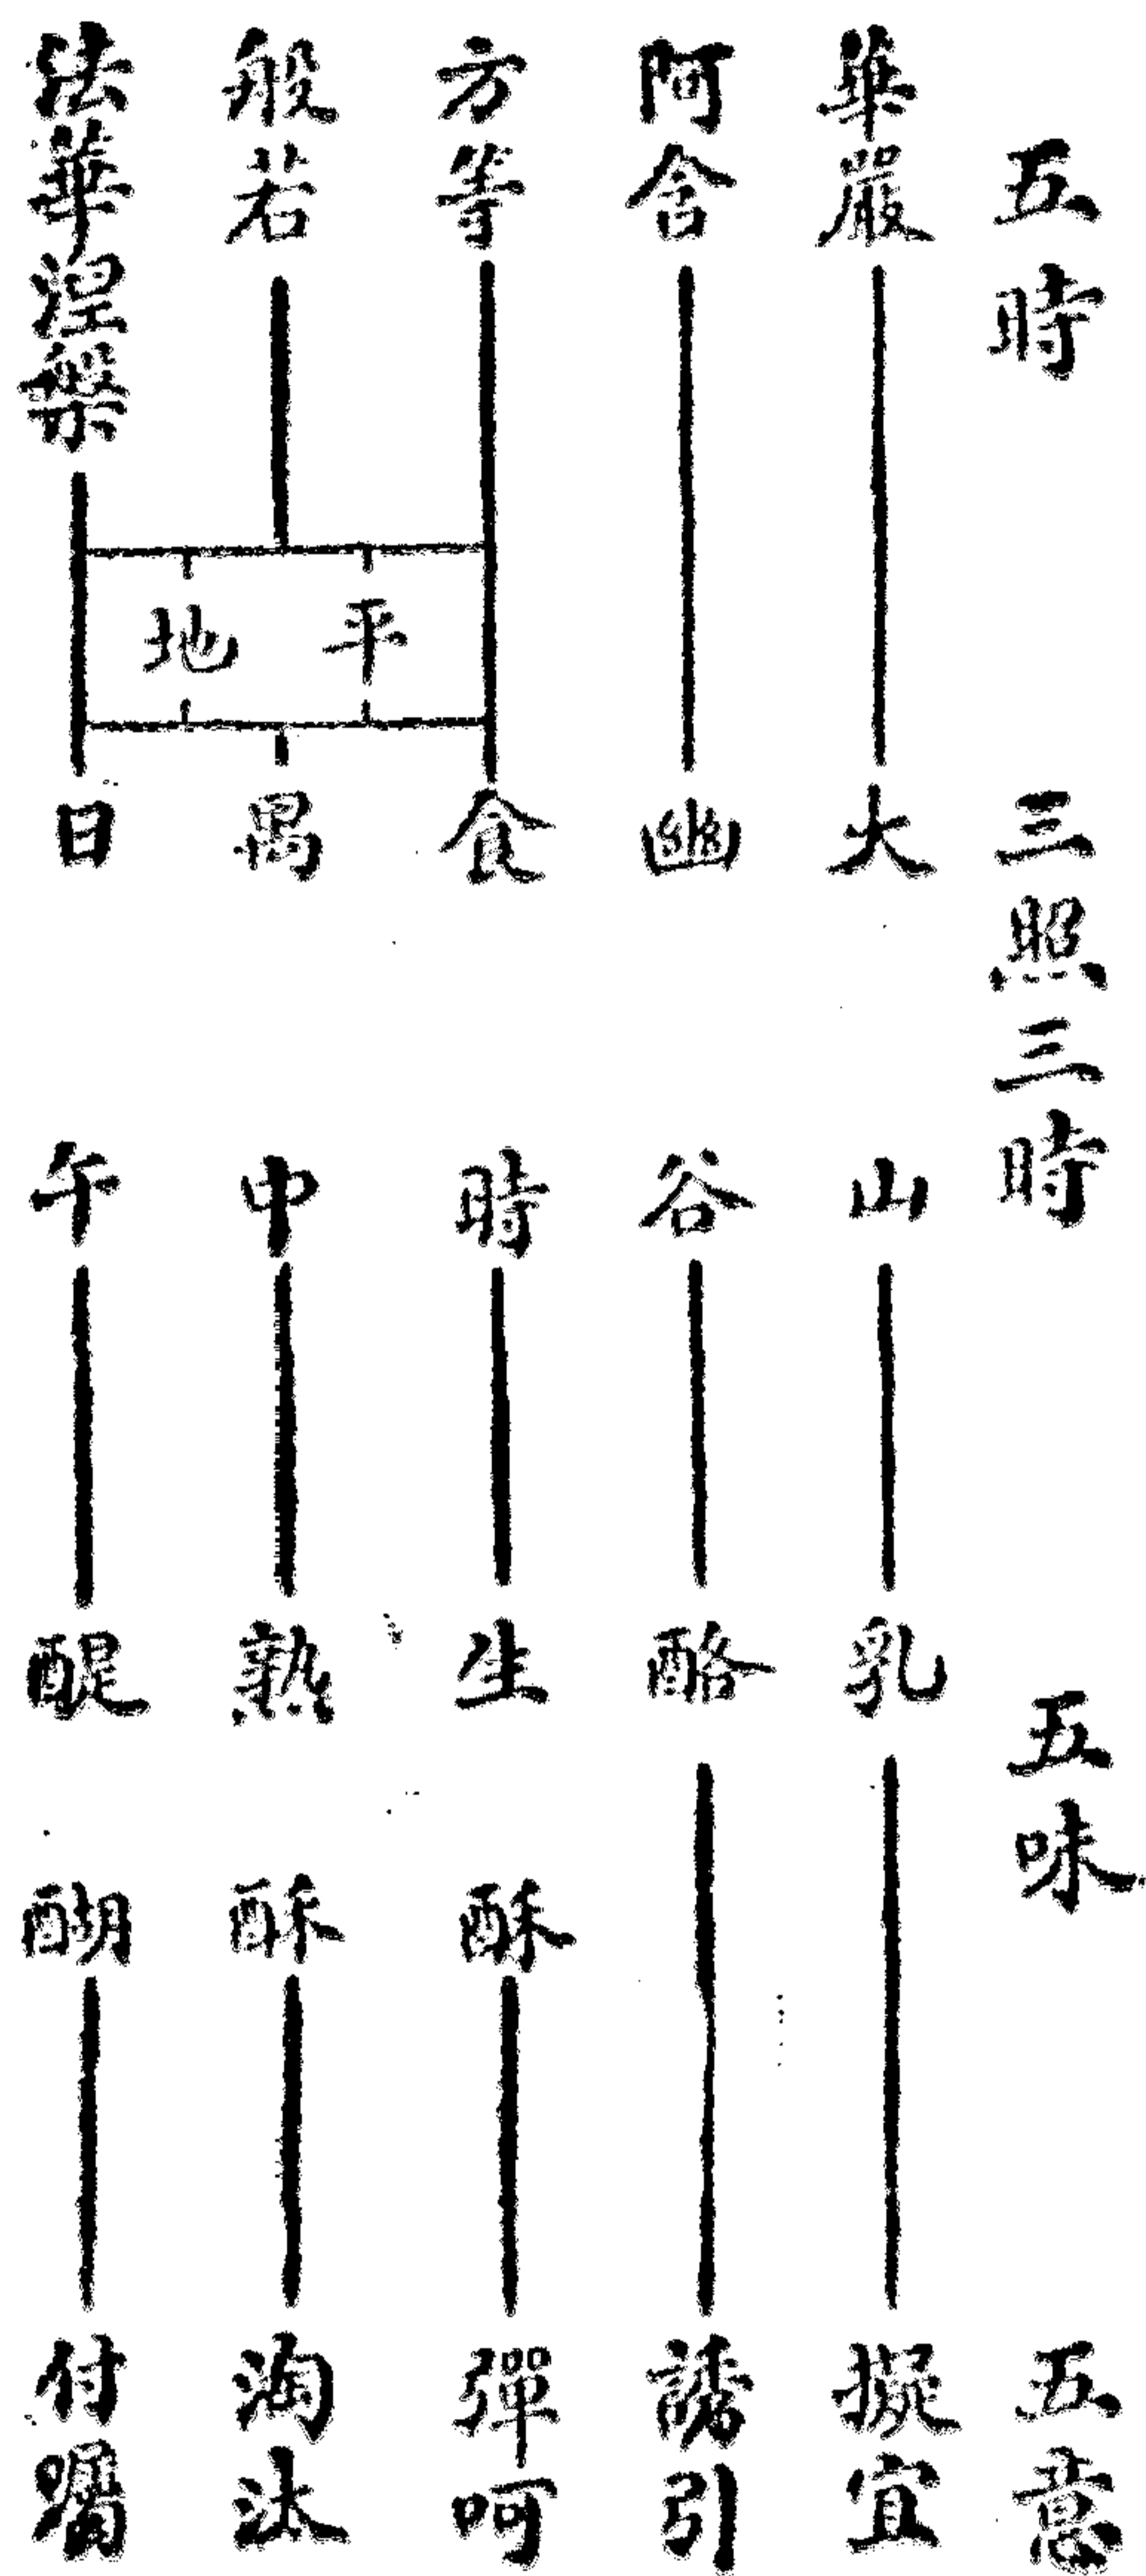 五時 三照三時 五味 五意
華嚴 大山 乳 擬宜
阿含 幽谷 酪 誘引
方等 食時 生酥 彈呵
平地
般若 禺中 熟酥 淘汰
法華涅槃 日午 醍醐 付囑